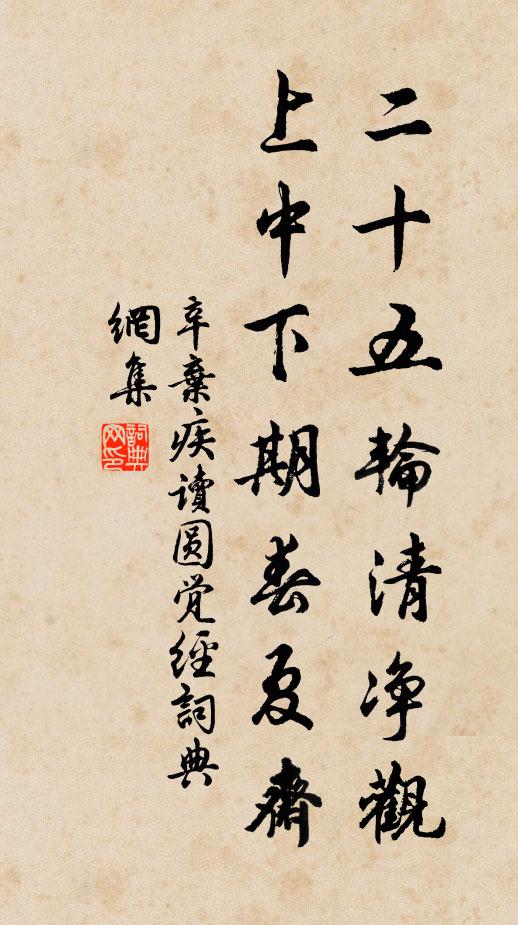 二十五輪清净觀
上中下期春夏齋
辛棄疾讀圆觉經詞典
網集
詞典網印